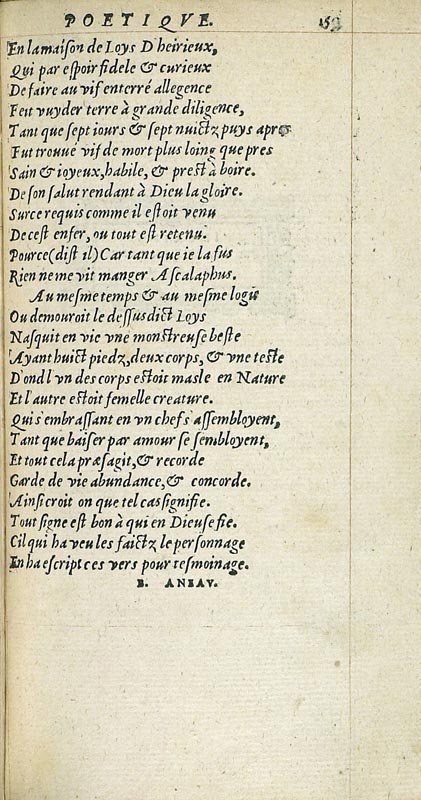 POETIQVE.
En la maison de Loys D'heirieux,
Qui par espoir fidele & curieux
De faire au vif enterré allegence
Feit vuyder terre à grande diligence,
Tant que sept iours & sept nuictz puys apres
Fut trouué vif de mort plus loing que pres
Sain & ioyeux, habile, & prest à boire.
De son salut rendant à Dieu la gloire.
Sur ce requis comme il estoit venu
De cest enfer, ou tout est retenu.
Pource (dist il) Car tant que ie la fus
Rien ne me vit manger Ascalaphus.
Au mesme temps & au mesme logis
Ou demouroit le dessusdict Loys
Nasquit en vie vne monstreuse beste
Ayant huict piedz, deux corps, & vne teste
D'ond l'vn des corps estoit masle en Nature
Et l'autre estoit femelle creature.
Qui s'embrassant en vn chef s'assembloyent,
Tant que baiser par amour se sembloyent,
Et tout cela præsagit, & recorde
Garde de vie abundance, & concorde.
Ainsi croit on que tel cas signifie.
Tout signe est bon à qui en Dieu se fie.
Cil qui ha veu les faictz le personnage
En ha escript ces vers pour tesmoinage.
B. ANEAV.